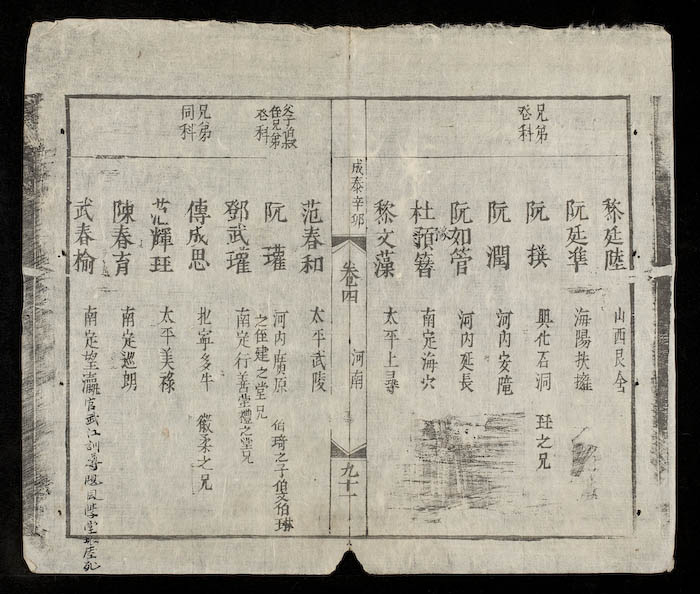 兄弟
登科
黎廷陸 山西艮全
阮廷準 海陽扶擁
阮撰 興化石洞 珏之兄
阮潤 河內安隆
阮如管 河內延長
杜預簪 南定海穴
黎文藻 太平上尋
成泰辛卯 卷四 河南 九十一
范春和 太平武陵
父子伯叔
侄兄弟
登科
阮瓘 河內廣原 伯琦之子伯文伯琳
之侄建之堂兄
鄧武瓘 南定行善堂禮之堂兄
兄弟
同科
傳成思 北寧多牛 徽柔之兄
范輝珏 太平美祿
陳春育 南定巡朗
武春榆 南定望瀛 官武江訓導